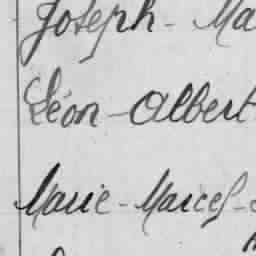 Joseph - Ma
Léon - Albert
Marie - Marcel -